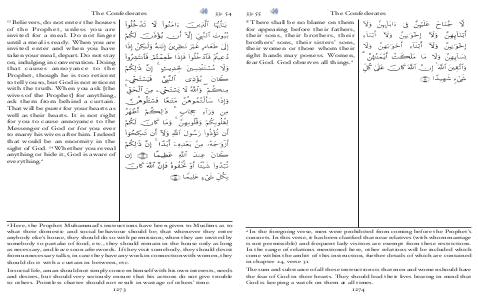 The Confederates
33 : 54
53 Believers, do not enter the houses
of the Prophet, unless you are
invited for a meal. Do not linger
until a meal is ready. When you are
invited enter and when you have
taken your meal, depart. Do not stay
on, indulging in conversation. Doing
that causes annoyance to the
Prophet, though he is too reticent
to tell you so, but God is not reticent
with the truth. When you ask [the
wives of the Prophet] for anything,
ask them from behind a curtain.
That will be purer for your hearts as
well as their hearts. It is not right
for you to cause annoyance to the
Messenger of God or for you ever
to marry his wives after him. Indeed
that would be an enormity in the
sight of God. 54 Whether you reveal
anything or hide it, God is aware of
everything.
يَٰٓأَيُّهَا ٱلَّذِينَ ءَامَنُوا۟ لَا تَدْخُلُوا۟
بُيُوتَ ٱلنَّبِىِّ إِلَّآ أَن يُؤْذَنَ لَكُمْ
إِلَىٰ طَعَامٍ غَيْرَ نَٰظِرِينَ إِنَىٰهُ وَلَٰكِنْ إِذَا
دُعِيتُمْ فَٱدْخُلُوا۟ فَإِذَا طَعِمْتُمْ فَٱنتَشِرُوا۟
وَلَا مُسْتَـْٔنِسِينَ لِحَدِيثٍ إِنَّ ذَٰلِكُمْ
كَانَ يُؤْذِى ٱلنَّبِىَّ فَيَسْتَحْىِۦ
مِنكُمْ وَٱللَّهُ لَا يَسْتَحْىِۦ مِنَ ٱلْحَقِّ
وَإِذَا سَأَلْتُمُوهُنَّ مَتَٰعًا فَسْـَٔلُوهُنَّ
مِن وَرَآءِ حِجَابٍ ذَٰلِكُمْ أَطْهَرُ
لِقُلُوبِكُمْ وَقُلُوبِهِنَّ وَمَا كَانَ لَكُمْ
أَن تُؤْذُوا۟ رَسُولَ ٱللَّهِ وَلَآ أَن تَنكِحُوٓا۟
أَزْوَٰجَهُۥ مِنۢ بَعْدِهِۦٓ أَبَدًا إِنَّ ذَٰلِكُمْ
كَانَ عِندَ ٱللَّهِ عَظِيمًا إِن
تُبْدُوا۟ شَيْـًٔا أَوْ تُخْفُوهُ فَإِنَّ ٱللَّهَ كَانَ
بِكُلِّ شَىْءٍ عَلِيمًا
a Here, the Prophet Muhammad's instructions have been given to Muslims as to
what their domestic and social behaviour should be; that whenever they enter
anybody else's house, they should do so with permission; when they are invited by
somebody to partake of food, etc., they should remain in the house only as long
as necessary, and leave soon afterwards. If they visit somebody, they should desist
from unnecessary talks; in case they have any work in connection with women, they
should do it with a curtain in between, etc.
In social life, a man should not simply concern himself with his own interests, needs
and desires, but should very seriously ensure that his actions do not give trouble
to others. Pointless chatter should not result in wastage of others' time.
1273
33: 55
The Confederates
55 There shall be no blame on them
for appearing before their fathers,
their sons, their brothers, their
brothers' sons, their sisters' sons,
their women or those whom their
right hands may possess. Women,
fear God. God observes all things.
لَّا جُنَاحَ عَلَيْهِنَّ فِىٓ ءَابَآئِهِنَّ وَلَآ
أَبْنَآئِهِنَّ وَلَآ إِخْوَٰنِهِنَّ وَلَآ
أَبْنَآءِ إِخْوَٰنِهِنَّ وَلَآ أَبْنَآءِ أَخَوَٰتِهِنَّ وَلَا
نِسَآئِهِنَّ وَلَا مَا مَلَكَتْ أَيْمَٰنُهُنَّ
وَٱتَّقِينَ ٱللَّهَ إِنَّ ٱللَّهَ كَانَ عَلَىٰ كُلِّ
شَىْءٍ شَهِيدًا
a In the foregoing verse, men were prohibited from coming before the Prophet's
consorts. In this verse, it has been clarified that near relatives (with whom marriage
is not permissible) and frequent lady visitors are exempt from these restrictions.
In the range of relations mentioned here, other relations will be included which
come within the ambit of this instruction, further details of which are contained
in chapter 24, verse 31
The sum and substance of all these instructions is that men and women should have
the fear of God in their hearts. They should lead their lives bearing in mind that
God is keeping a watch on them at all times.
1274